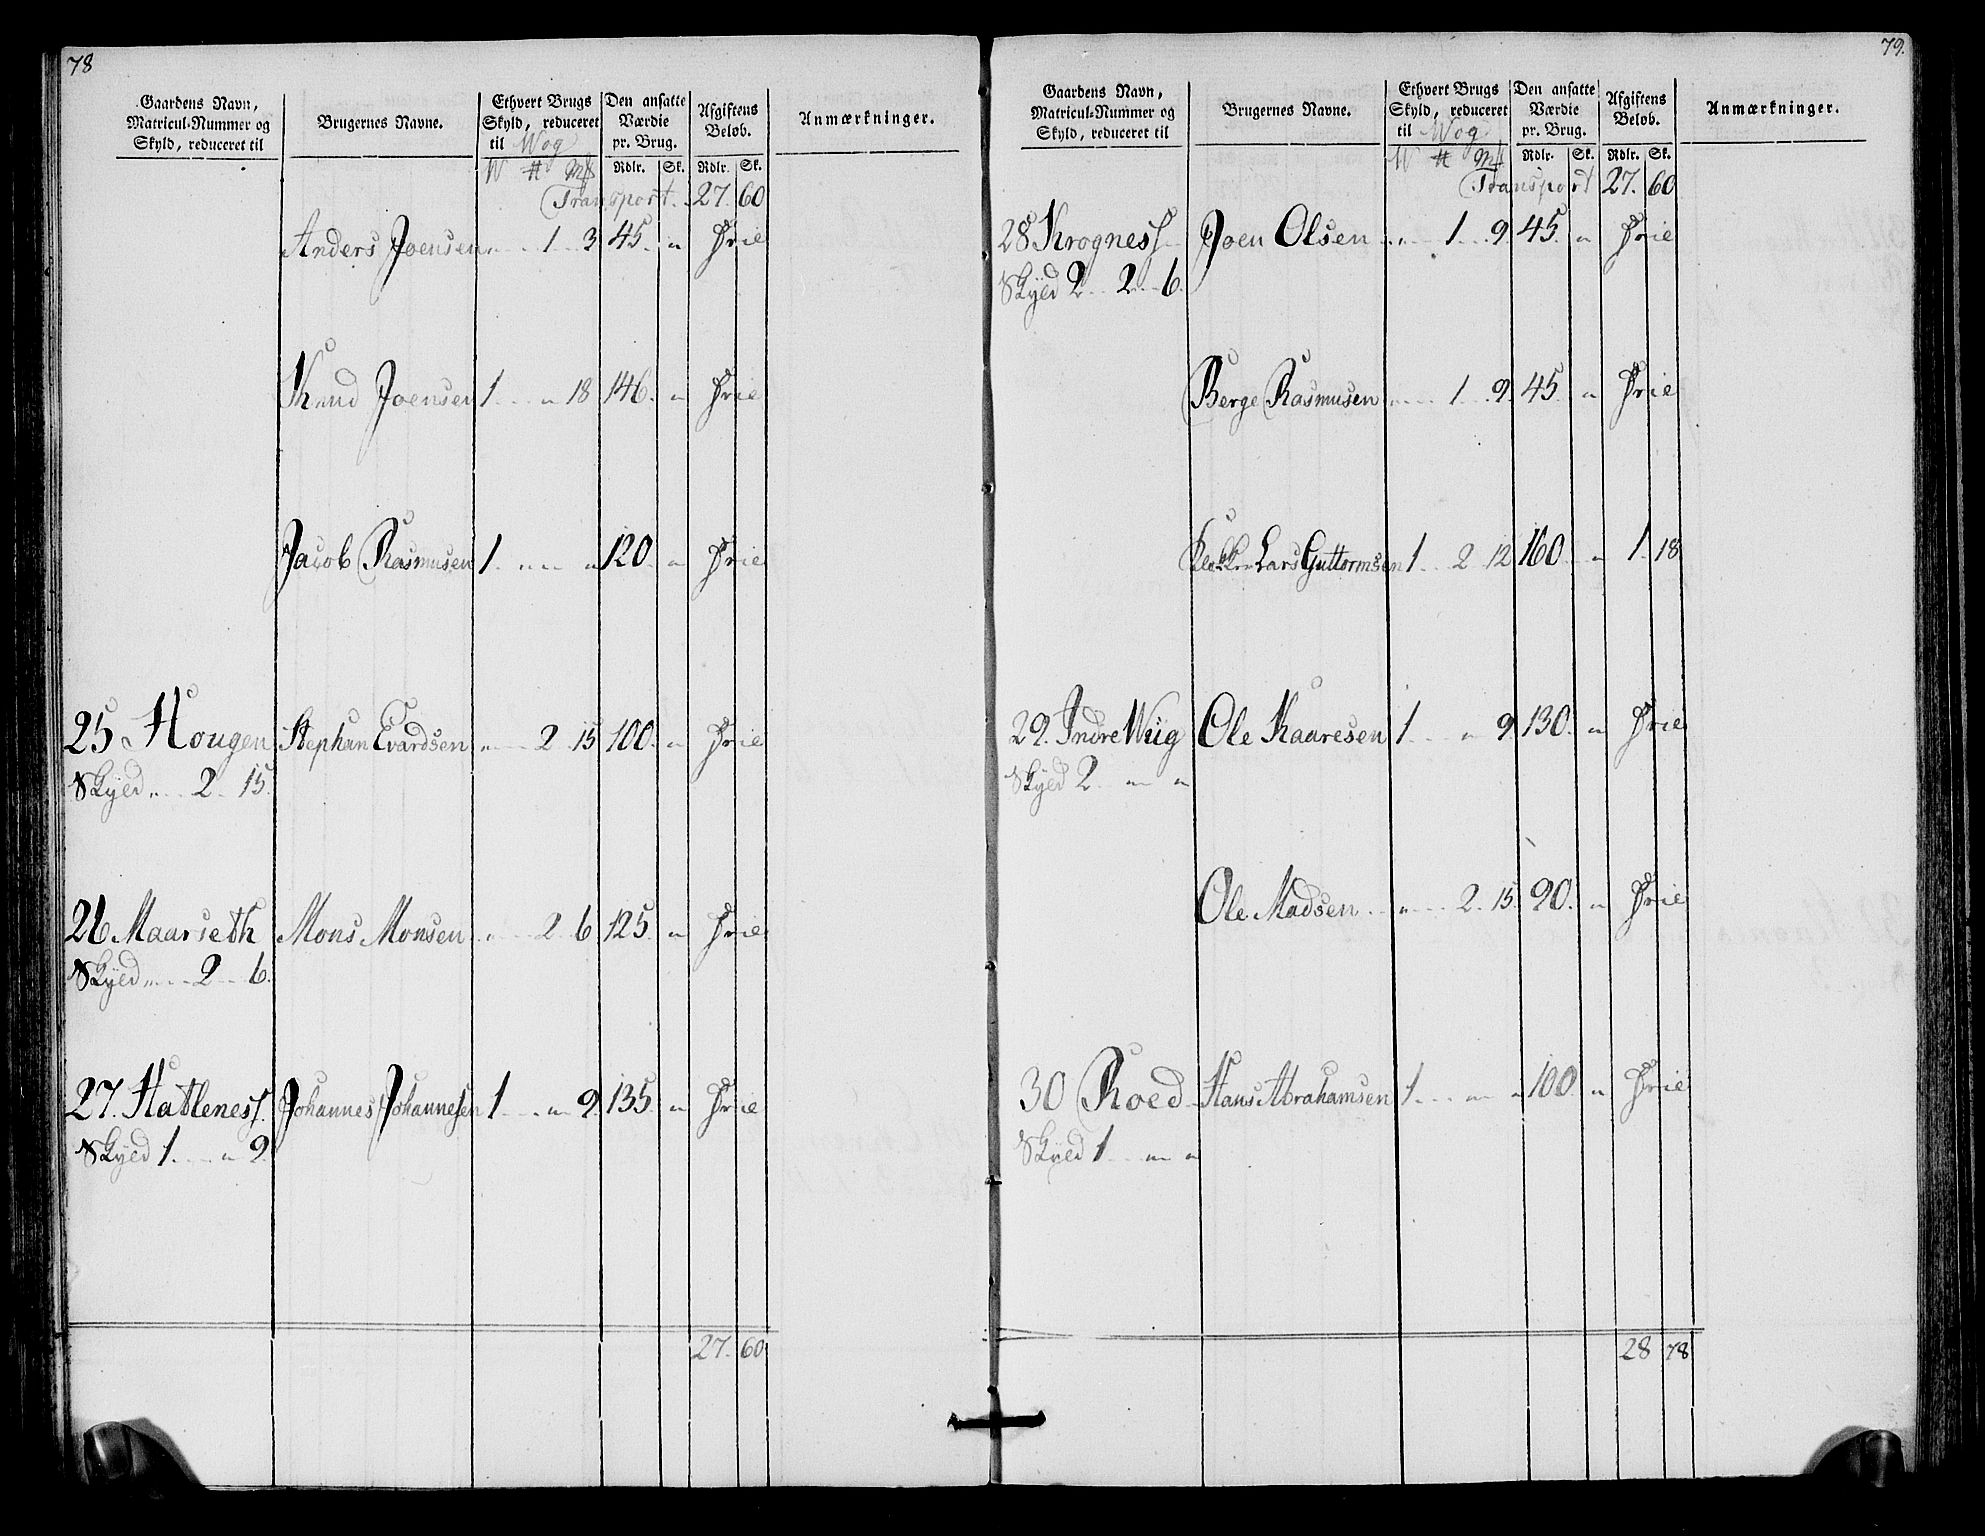 78
Gaardens Navn, Matricul-Nummer og Skyld, reduceret til
Brugernes Navne.
Ethvert Brugs Skyld, reduceret til Wog
Den ansatte Værdie pr. Brug.
Afgiftens Beløb.
Anmærkninger.
W # M#
Rdlr. Sk. Rdlr. Sk.
Transport. 27. 60
Anders Joensen „ 1 3 45. „ Frie
Knud Joensen 1 „ 18 146. „ Frie
Jacob Rasmusen 1 „ „ 120. „ Frie
25 Hougen Stephan Evardsen „ 2 15 100. „ Frie
Skyld „ 2 15.
26 Maarseth Mons Monsen „ 2 6 125. „ Frie
Skyld „ 2 6.
27. Hatlenes Johannes Johannesen 1 „ 9 135. „ Frie
Skyld 1 „ 9
27. 60
79.
Gaardens Navn, Matricul-Nummer og Skyld, reduceret til
Brugernes Navne.
Ethvert Brugs Skyld, reduceret til Wog
Den ansatte Værdie pr. Brug.
Afgiftens Beløb.
Anmærkninger.
W # M#
Rdlr. Sk. Rdlr. Sk.
Transport 27. 60
28 Krognes Joen Olsen „ 1 9 45. „ Frie
Skyld 2 2 6.
Berge Rasmusen „ 1 9 45. „ Frie
Klokker Lars Guttormsen 1 2 12 160 „ 1. 18
29. Indre Wiig Ole Kaaresen 1 „ 9 130. „ Frie
Skyld 2 „ „
Ole Madsen „ 2 15 90. „ Frie
30 Roed Hans Abrahamsen 1 „ „ 100 „ Frie
Skyld 1 „ „
28 78